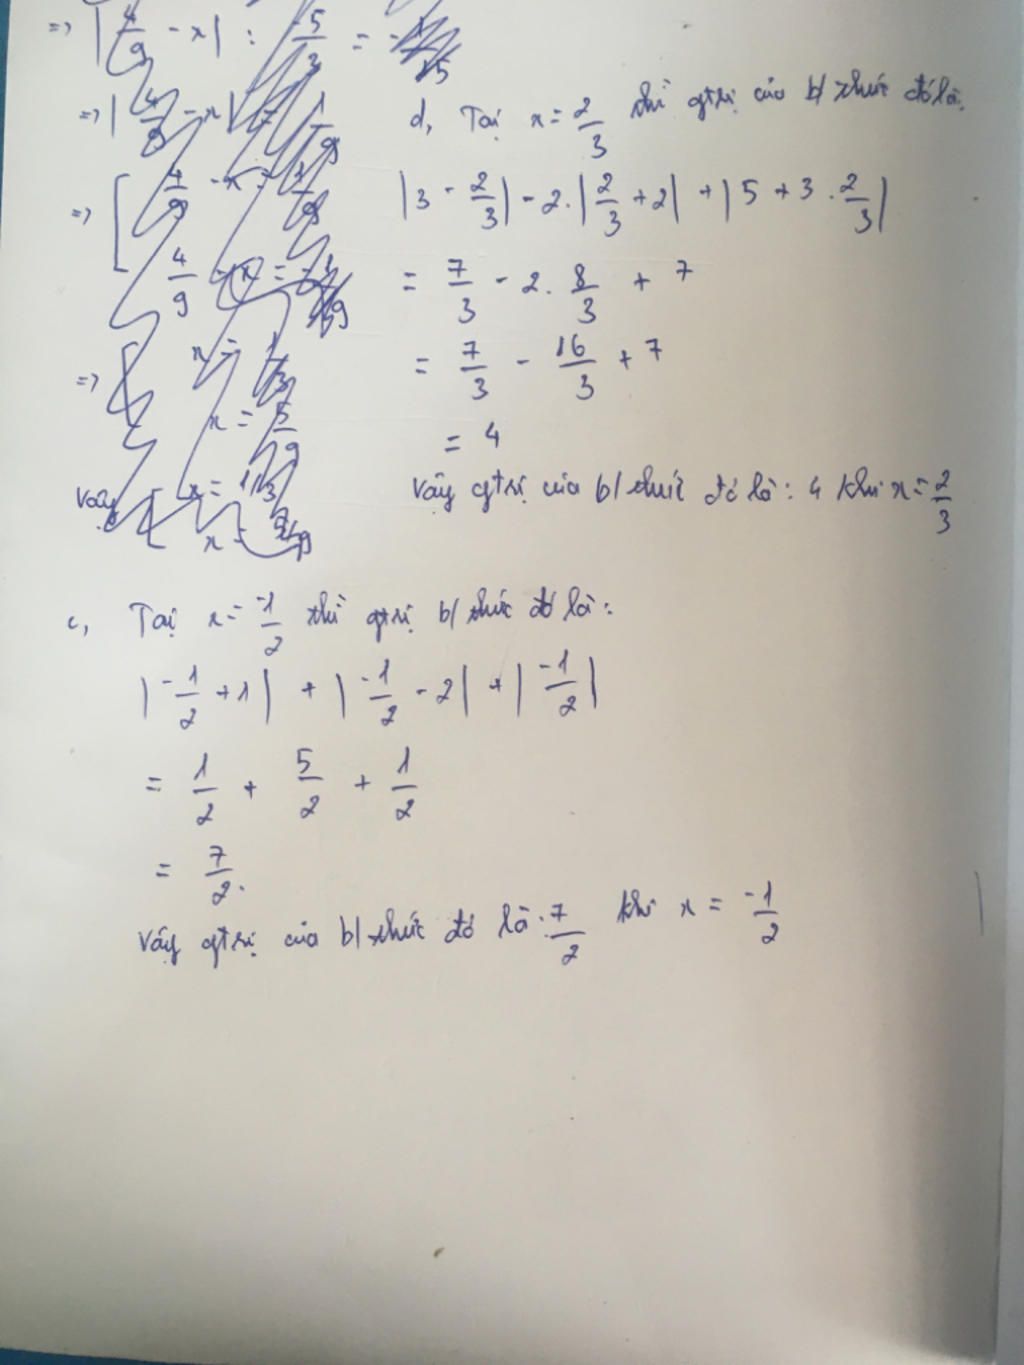 => |4/9 - x| : -5/3 =
=> |4/9 - x| = 1/9
=> [ 4/9 - x = 1/9
4/9 - x = -1/9
=> [ x = 1/3
x = 5/9
Vậy [ x = 1/3
x =
d, Tại x = 2/3 thì gtrị của b/thức đó là:
|3 - 2/3| - 2.|2/3 + 2| + |5 + 3 . 2/3|
= 7/3 - 2. 8/3 + 7
= 7/3 - 16/3 + 7
= 4
Vậy gtrị của b/thức đó là: 4 khi x = 2/3
c, Tại x = -1/2 thì gtrị b/thức đó là:
|-1/2 + 1| + |-1/2 - 2| + |-1/2|
= 1/2 + 5/2 + 1/2
= 7/2.
Vậy gtrị của b/thức đó là: 7/2 khi x = -1/2